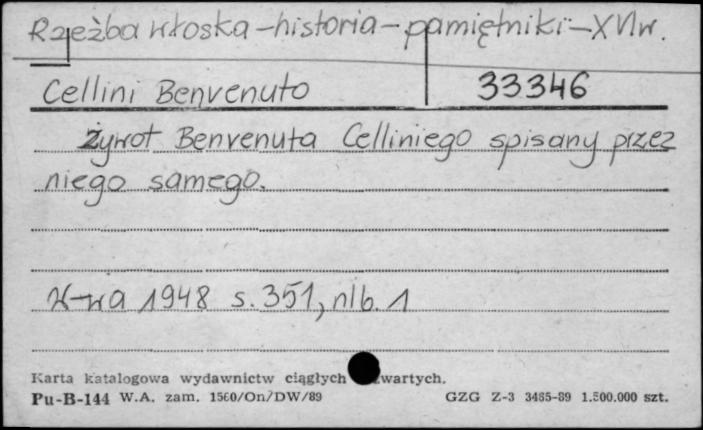 Rzeźba włoska – historia – pamiętniki – XVI w.
Cellini Benvenuto 33346
Żywot Benvenuta Celliniego spisany przez
niego samego.
W-wa 1948 s. 351, nlb. 1
Karta katalogowa wydawnictw ciągłych zwartych.
Pu-B-144 W.A. zam. 1560/On/DW/89 GZG Z-3 3485-89 1.500.000 szt.